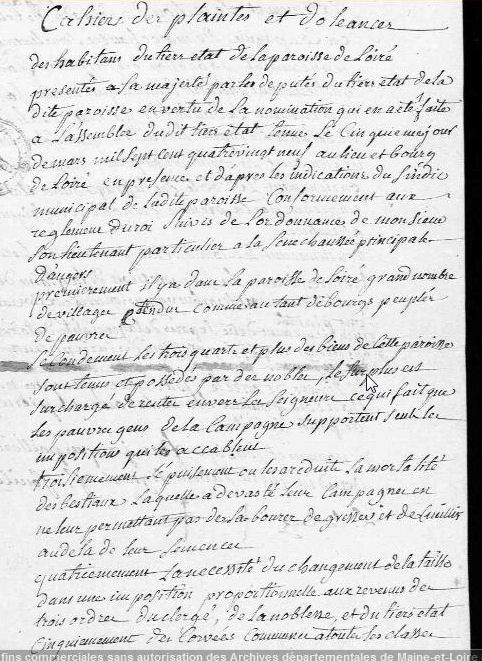 Cahier des plaintes et doleances
des habitans du tiers etat de la paroisse de Loiré
presentés a sa majesté par les deputés du tiers etat de la
dite paroisse en vertu de la nomination qui en a eté faite
a l'assemblee du dit tiers etat tenue le cinquieme jour
de mars mil sept cent quatre vingt neuf au lieu et bourg
de Loiré en presence et d'apres les indications du sindic
municipal de la dite paroisse conformement aux
reglement du roi suivis de l'ordonnance de monsieur
son lieutenant particulier a la senechaussée principale
d'angers
premierement il y a dans la paroisse de Loiré grand nombre
de villages comme autant de bourgs peuplés
de pauvres
secondement les trois quarts et plus des biens de cette paroisse
sont tenus et possedés par des nobles, le surplus est
surchargé de rentes envers les seigneurs ce qui fait que
les pauvres gens de la campagne supportent seuls les
impositions qui les accablent
troisiemement l'epuisement ou les a reduits la mortalité
des bestiaux laquelle a devasté leur campagnes en
ne leur permettant pas de labourer de et de
au dela de leur semences
quatriemement la necessité du changement de la taille
dans une imposition proportionnelle aux revenus des
trois ordres du clergé, de la noblesse, et du tiers etat
cinquiemement des corvées communes a toutes les classes
fins commerciales sans autorisation des Archives départementales de Maine-et-Loire